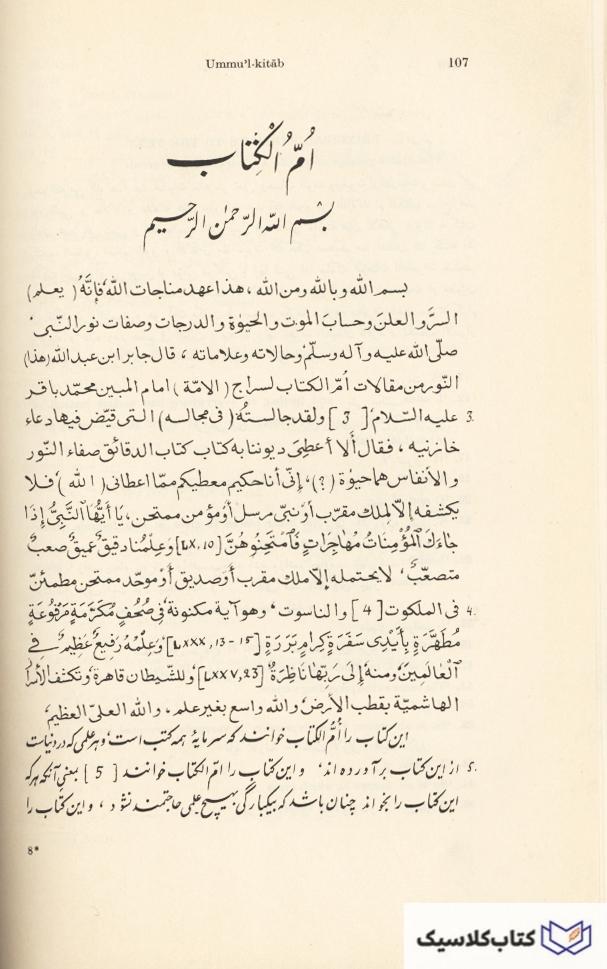 Ummu'l-kitāb 107
اُمّ الْکِتاب
بسم الله الرّحمٰن الرّحیم
بسم الله وبالله ومن الله ، هذا عهد مناجات الله ٬ فإنّهُ ( يعلم )
السرَّ و العلنَ وحسابَ الموت والحيٰوة والدرجات وصفات نور النّبی ٬
صلّی الله عليه وآله وسلّم وحالاته وعلاماته ، قال جابر ابن عبد الله (هذا)
النّور من مقالات أمّ الكتاب لسراج ( الامّة ) امام المبين محمّد باقر
3. عليه السّلام ٬ [ 3 ] ولقد جالستُهُ ( فی مجالسه ) التی قيّض فيها دعاء
خازنیه ، فقال أَلا أعطِیَ ديوننا به كتاب كتاب الدقائق صفاء النّور
والأنفاس هما حيٰوة (؟) ، إنّی أنا حكيم معطيكم ممّا اعطانی ( الله ) ٬ فلا
يكشفه إلّا لملك مقرّب أو نبیّ مرسل أو مؤمن ممتحن ، يَا أَيُّهَا ٱلنَّبِیُّ إِذَا
جَاءَكَ ٱلْمُؤْمِنَاتُ مُهَاجِرَاتٍ فَٱمْتَحِنُوهُنَّ [LX, 10] وَعِلمُنا دقيقٌ عميقٌ صعبٌ
متصعّبٌ ٬ لا يحتمله إلّا ملك مقرب أو صديق أو موحّد ممتحن مطمئنّ
4. فی الملكوت [ 4 ] والناسوت ٬ وهو آية مكنونة ٬ فِی صُحُفٍ مُكَرَّمَةٍ مَرْفُوعَةٍ
مُطَهَّرَةٍ بِأَيْدِی سَفَرَةٍ كِرَامٍ بَرَرَةٍ [LXXX, 13-15] وَعِلْمُهُ رفيعٌ عظيمٌ فی
ٱلْعَالَمِينَ ٬ ومنه إِلَی رَبِّهَا نَاظِرَةٌ [LXXV, 23] ٬ وللشّيطان قاهرة ٬ وتكثف
الهاشميّة بقطب الأرض ٬ والله واسع بغير علم ، والله العلیّ العظيم ٬
این کتاب را أُمُّ الکتاب خوانند که سرمایهٔ همه کتب است ٬ و هر علمی که در دنیاست
5. از این کتاب برآورده اند ٬ و این کتاب را امّ الکتاب خوانند [ 5 ] یعنی آنکه هر که
این کتاب را بخواند چنان باشد که بیکبارگی بهیچ علمی حاجتمند نشود ، و این کتاب را
8*
کتاب کلاسیک